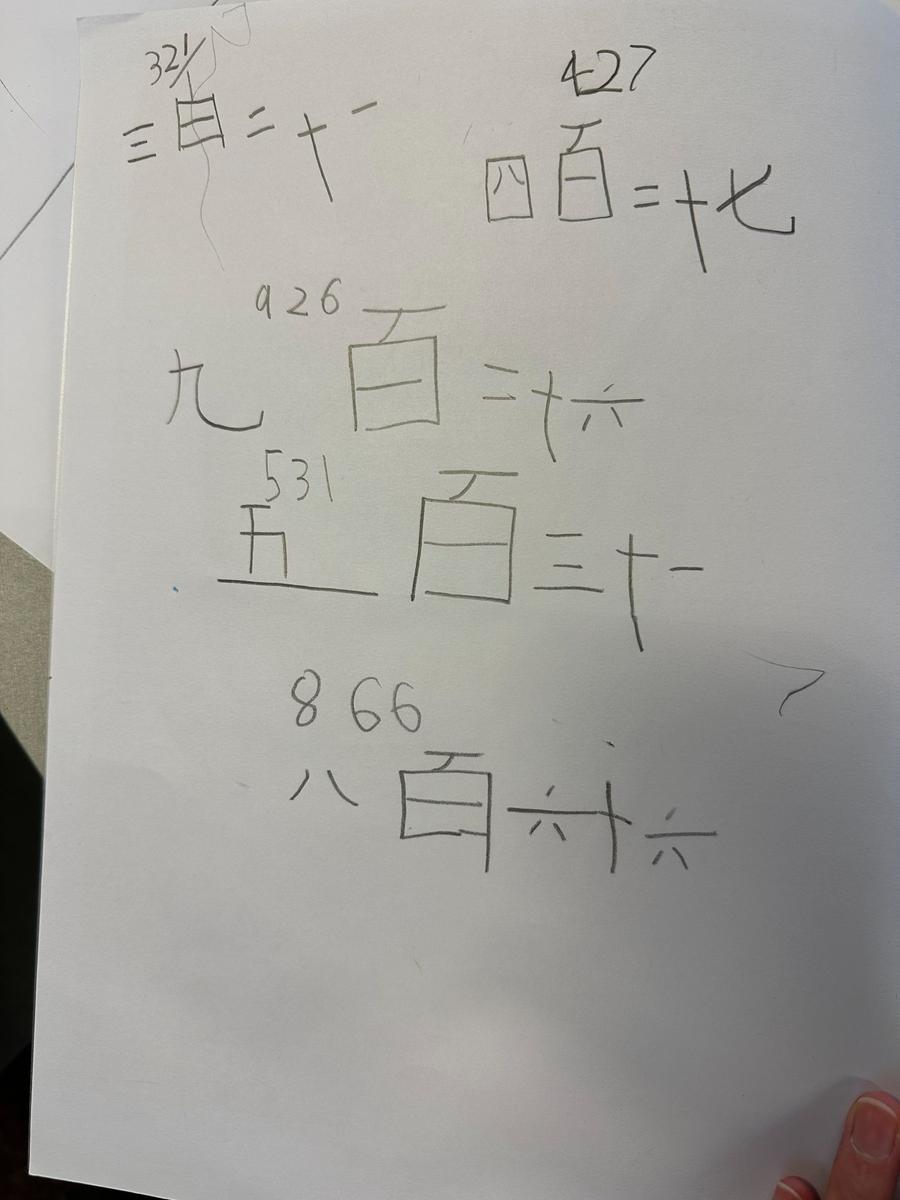 321
三百二十一
427
四百二十七
926
九百二十六
531
五百三十一
866
八百六十六